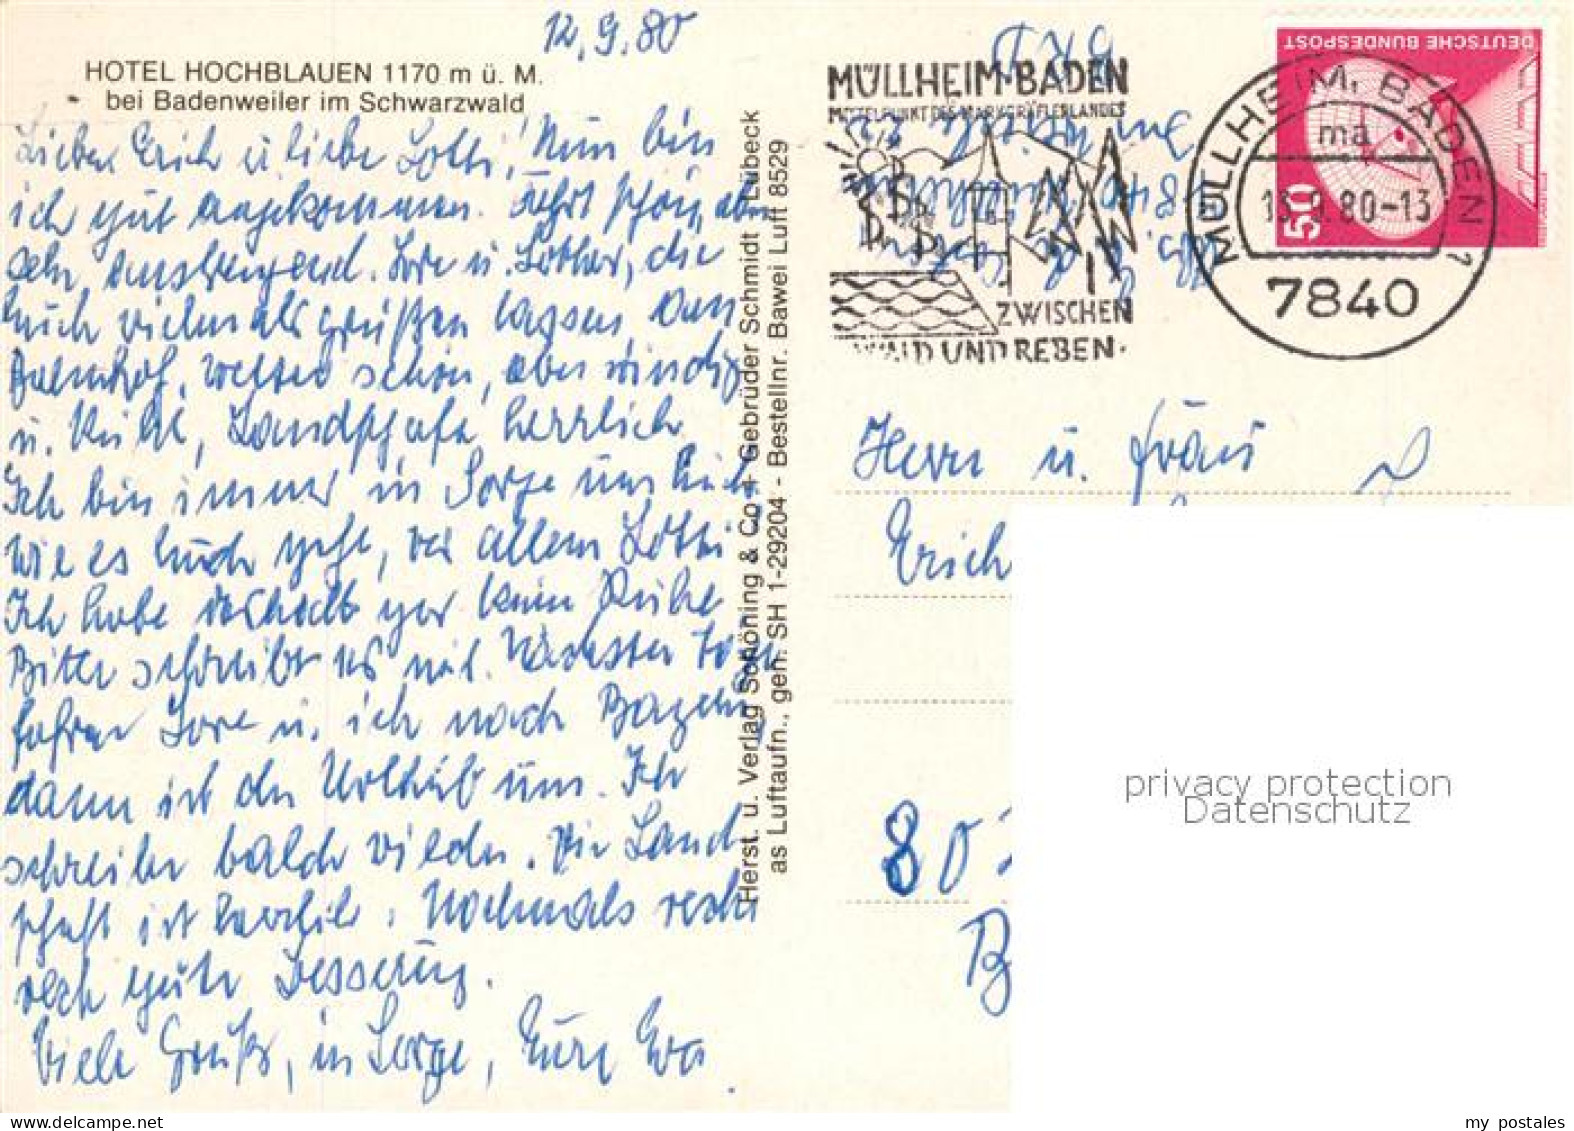 12.9.80
HOTEL HOCHBLAUEN 1170 m ü. M.
bei Badenweiler im Schwarzwald
Lieber Erich u. liebe Lotti! Nun bin
ich gut angekommen. Fahrt schön, aber
sehr anstrengend. Lore u. Lothar, die
Euch vielmals grüßen lassen am
Bahnhof, Wetter schön, aber windig
u. kühl, Landschaft herrlich
Ich bin immer in Sorge um Euch
wie es Euch geht, vor allem Lotti
Ich habe deshalb gar keine Ruhe
Bitte schreibt es mir. Nächsten Tage
fahren Lore u. ich nach
dann ist der Urlaub um. Ich
schreibe bald wieder. Die Land-
schaft ist herrlich. Nochmals recht
recht gute Besserung.
Viele Grüße, in Sorge, Eure Eva.
Herst. u. Verlag Schöning & Co + Gebrüder Schmidt Lübeck
as Luftaufn., gen. SH 1-29204 - Bestellnr. Bawei Luft 8529
MÜLLHEIM-BADEN
MITTELPUNKT DES MARKGRÄFLERLANDES
ZWISCHEN
WALD UND REBEN.
DEUTSCHE BUNDESPOST
50
MÜLLHEIM, BADEN 1
ma
.9.80-13
7840
Herrn u. Frau
Erich
80
B
privacy protection
Datenschutz
my postales